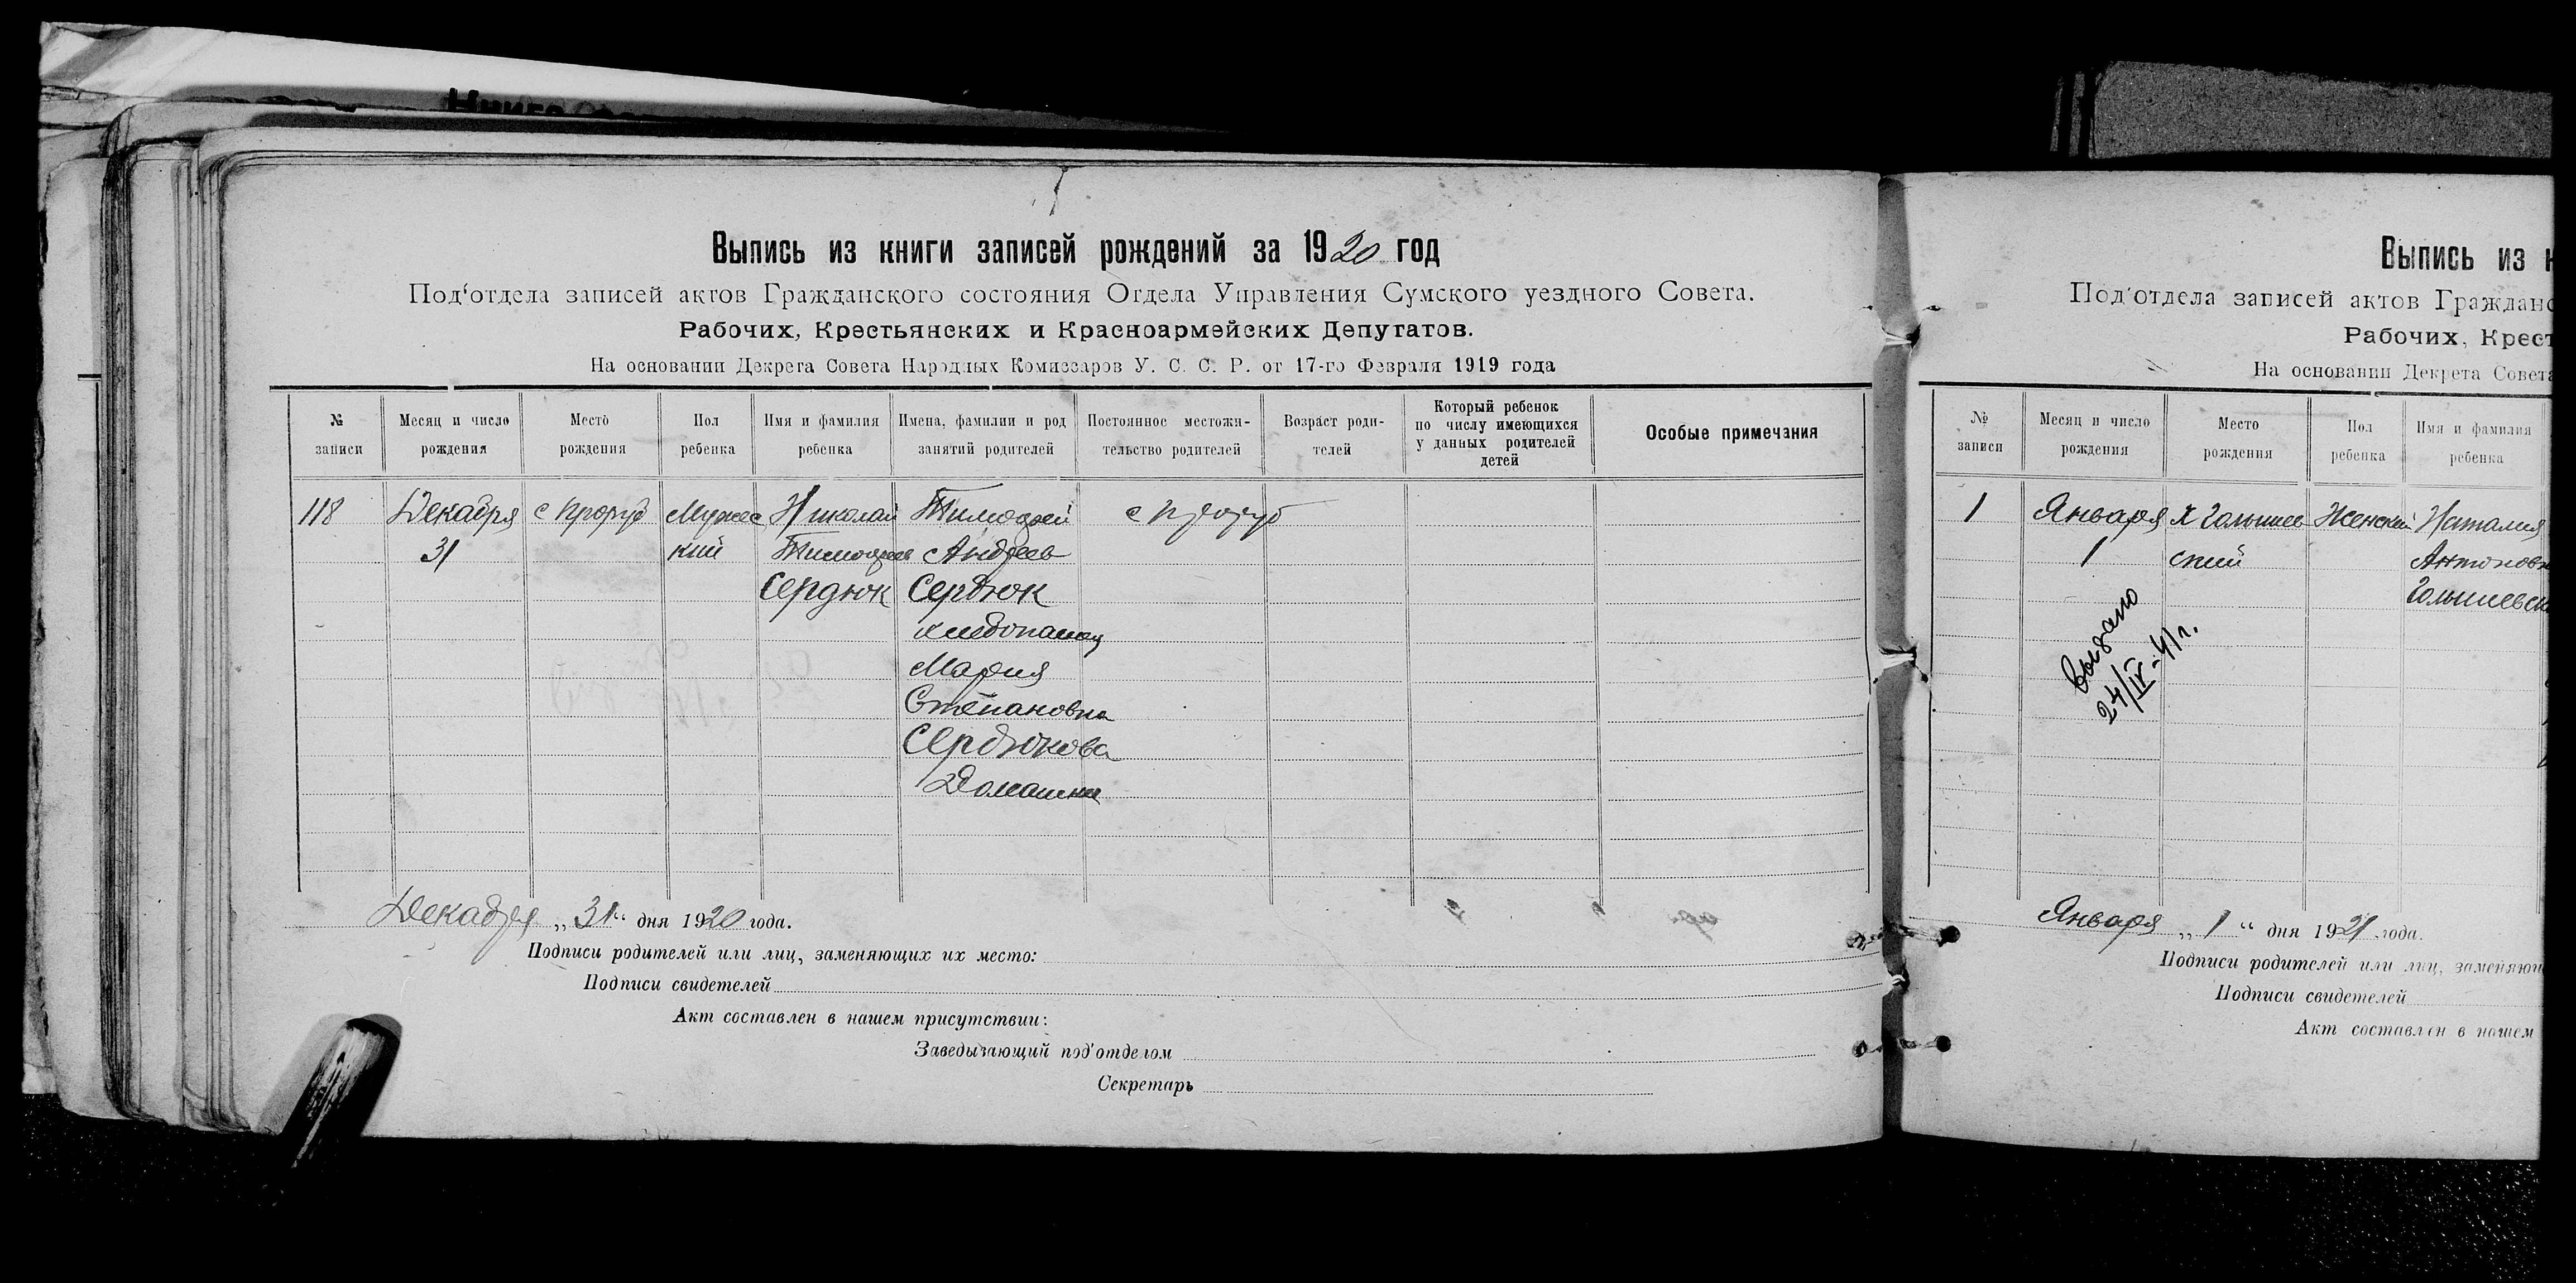 Выпись из книги записей рождений за 1920 год
Под‘отдела записей актов Гражданского состояния Отдела Управления Сумского уездного Совета.
Рабочих, Крестьянских и Красноармейских Депутатов.
На основании Декрета Совета Народных Комиссаров У. С. С. Р. от 17-го Февраля 1919 года
№ записи
Месяц и число рождения
Место рождения
Пол ребенка
Имя и фамилия ребенка
Имена, фамилии и род занятий родителей
Постоянное местожи-
тельство родителей
Возраст роди-
телей
Который ребенок
по числу имеющихся
у данных родителей
детей
Особые примечания
118 Декабря с Проруб Мужес Николай Тимофей с Проруб
31 кий Тимофеев Андреев
Сердюк Сердюк
хлебопашец
Мария
Степановна
Сердюкова
Домашн
Декабря „31“ дня 1920 года.
Подписи родителей или лиц, заменяющих их место:
Подписи свидетелей
Акт составлен в нашем присутствии:
Заведывающий под‘отделом
Секретарь
Выпись из
Под‘отдела записей актов Гражданс
Рабочих, Крест
На основании Декрета Совета
№ записи
Месяц и число рождения
Место рождения
Пол ребенка
Имя и фамилия ребенка
1 Января Х Голышев Женский Наталия
1 ский Антоновн
Голышевск
Выдано
24/IV-41 г.
Января „1“ дня 1921 года.
Подписи родителей или лиц, заменяющ
Подписи свидетелей
Акт составлен в нашем